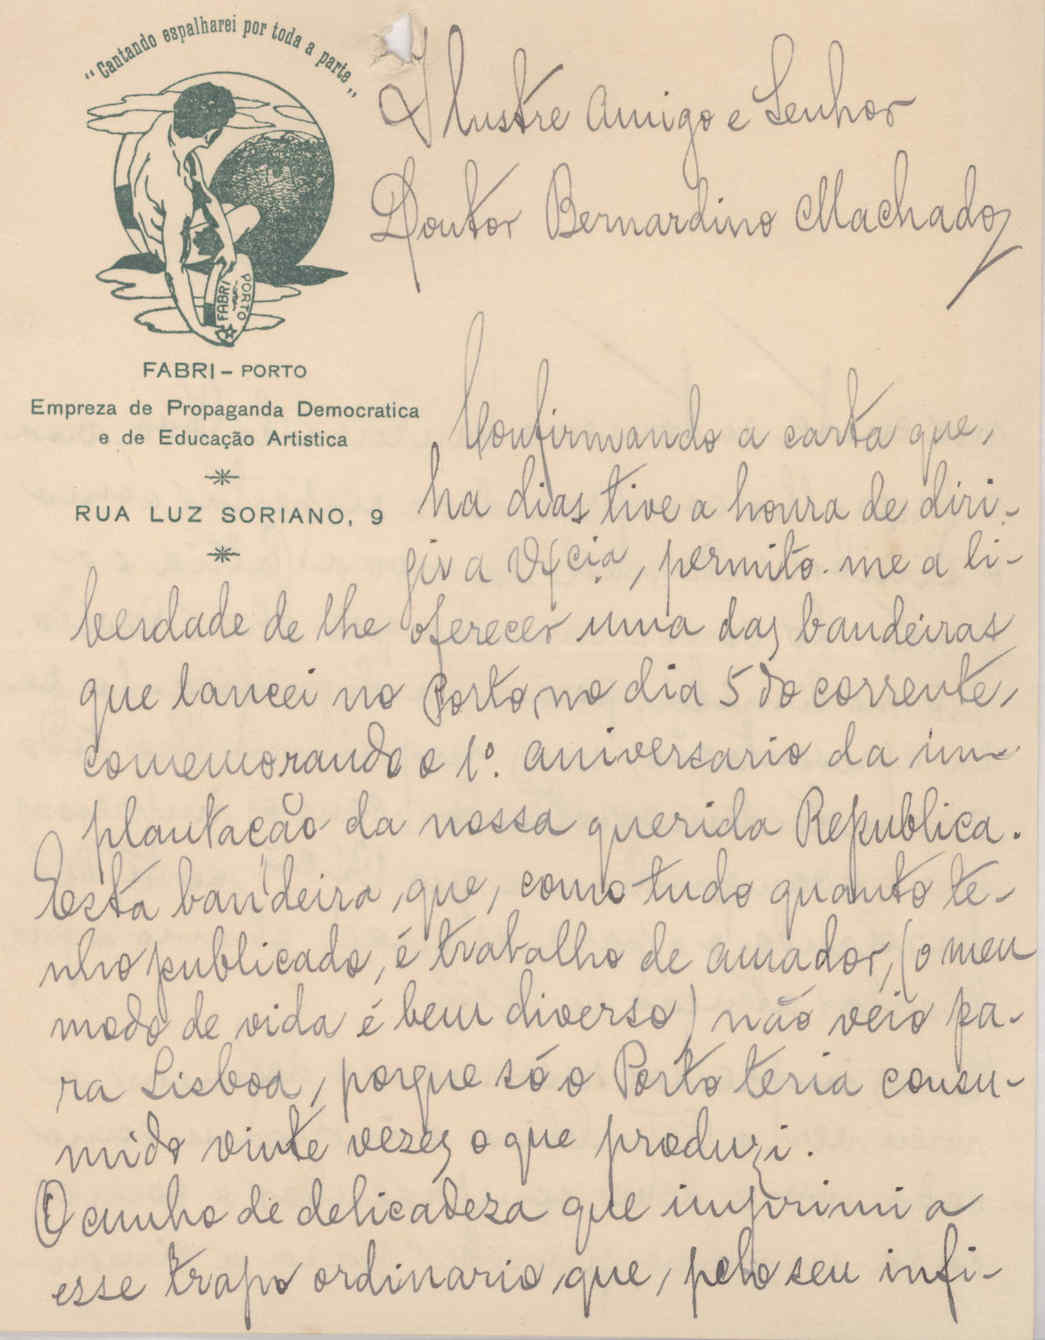 "Cantando espalharei por toda a parte"
FABRI
PORTO
FABRI - PORTO
Empreza de Propaganda Democratica
e de Educação Artistica
RUA LUZ SORIANO, 9
Illustre Amigo e Senhor
Doutor Bernardino Machado
Confirmando a carta que,
ha dias tive a honra de diri-
gir a V. Ex.cia, permito-me a li-
berdade de lhe oferecer uma das bandeiras
que lancei no Porto, no dia 5 do corrente,
comemorando o 1º. aniversario da im-
plantação da nossa querida Republica.
Esta bandeira, que, como tudo quanto te-
nho publicado, é trabalho de amador, (o meu
modo de vida é bem diverso) não veio pa-
ra Lisboa, porque só o Porto teria consu-
mido vinte vezes o que produzi.
O cunho de delicadeza que imprimi a
esse trapo ordinario, que, pelo seu infi-